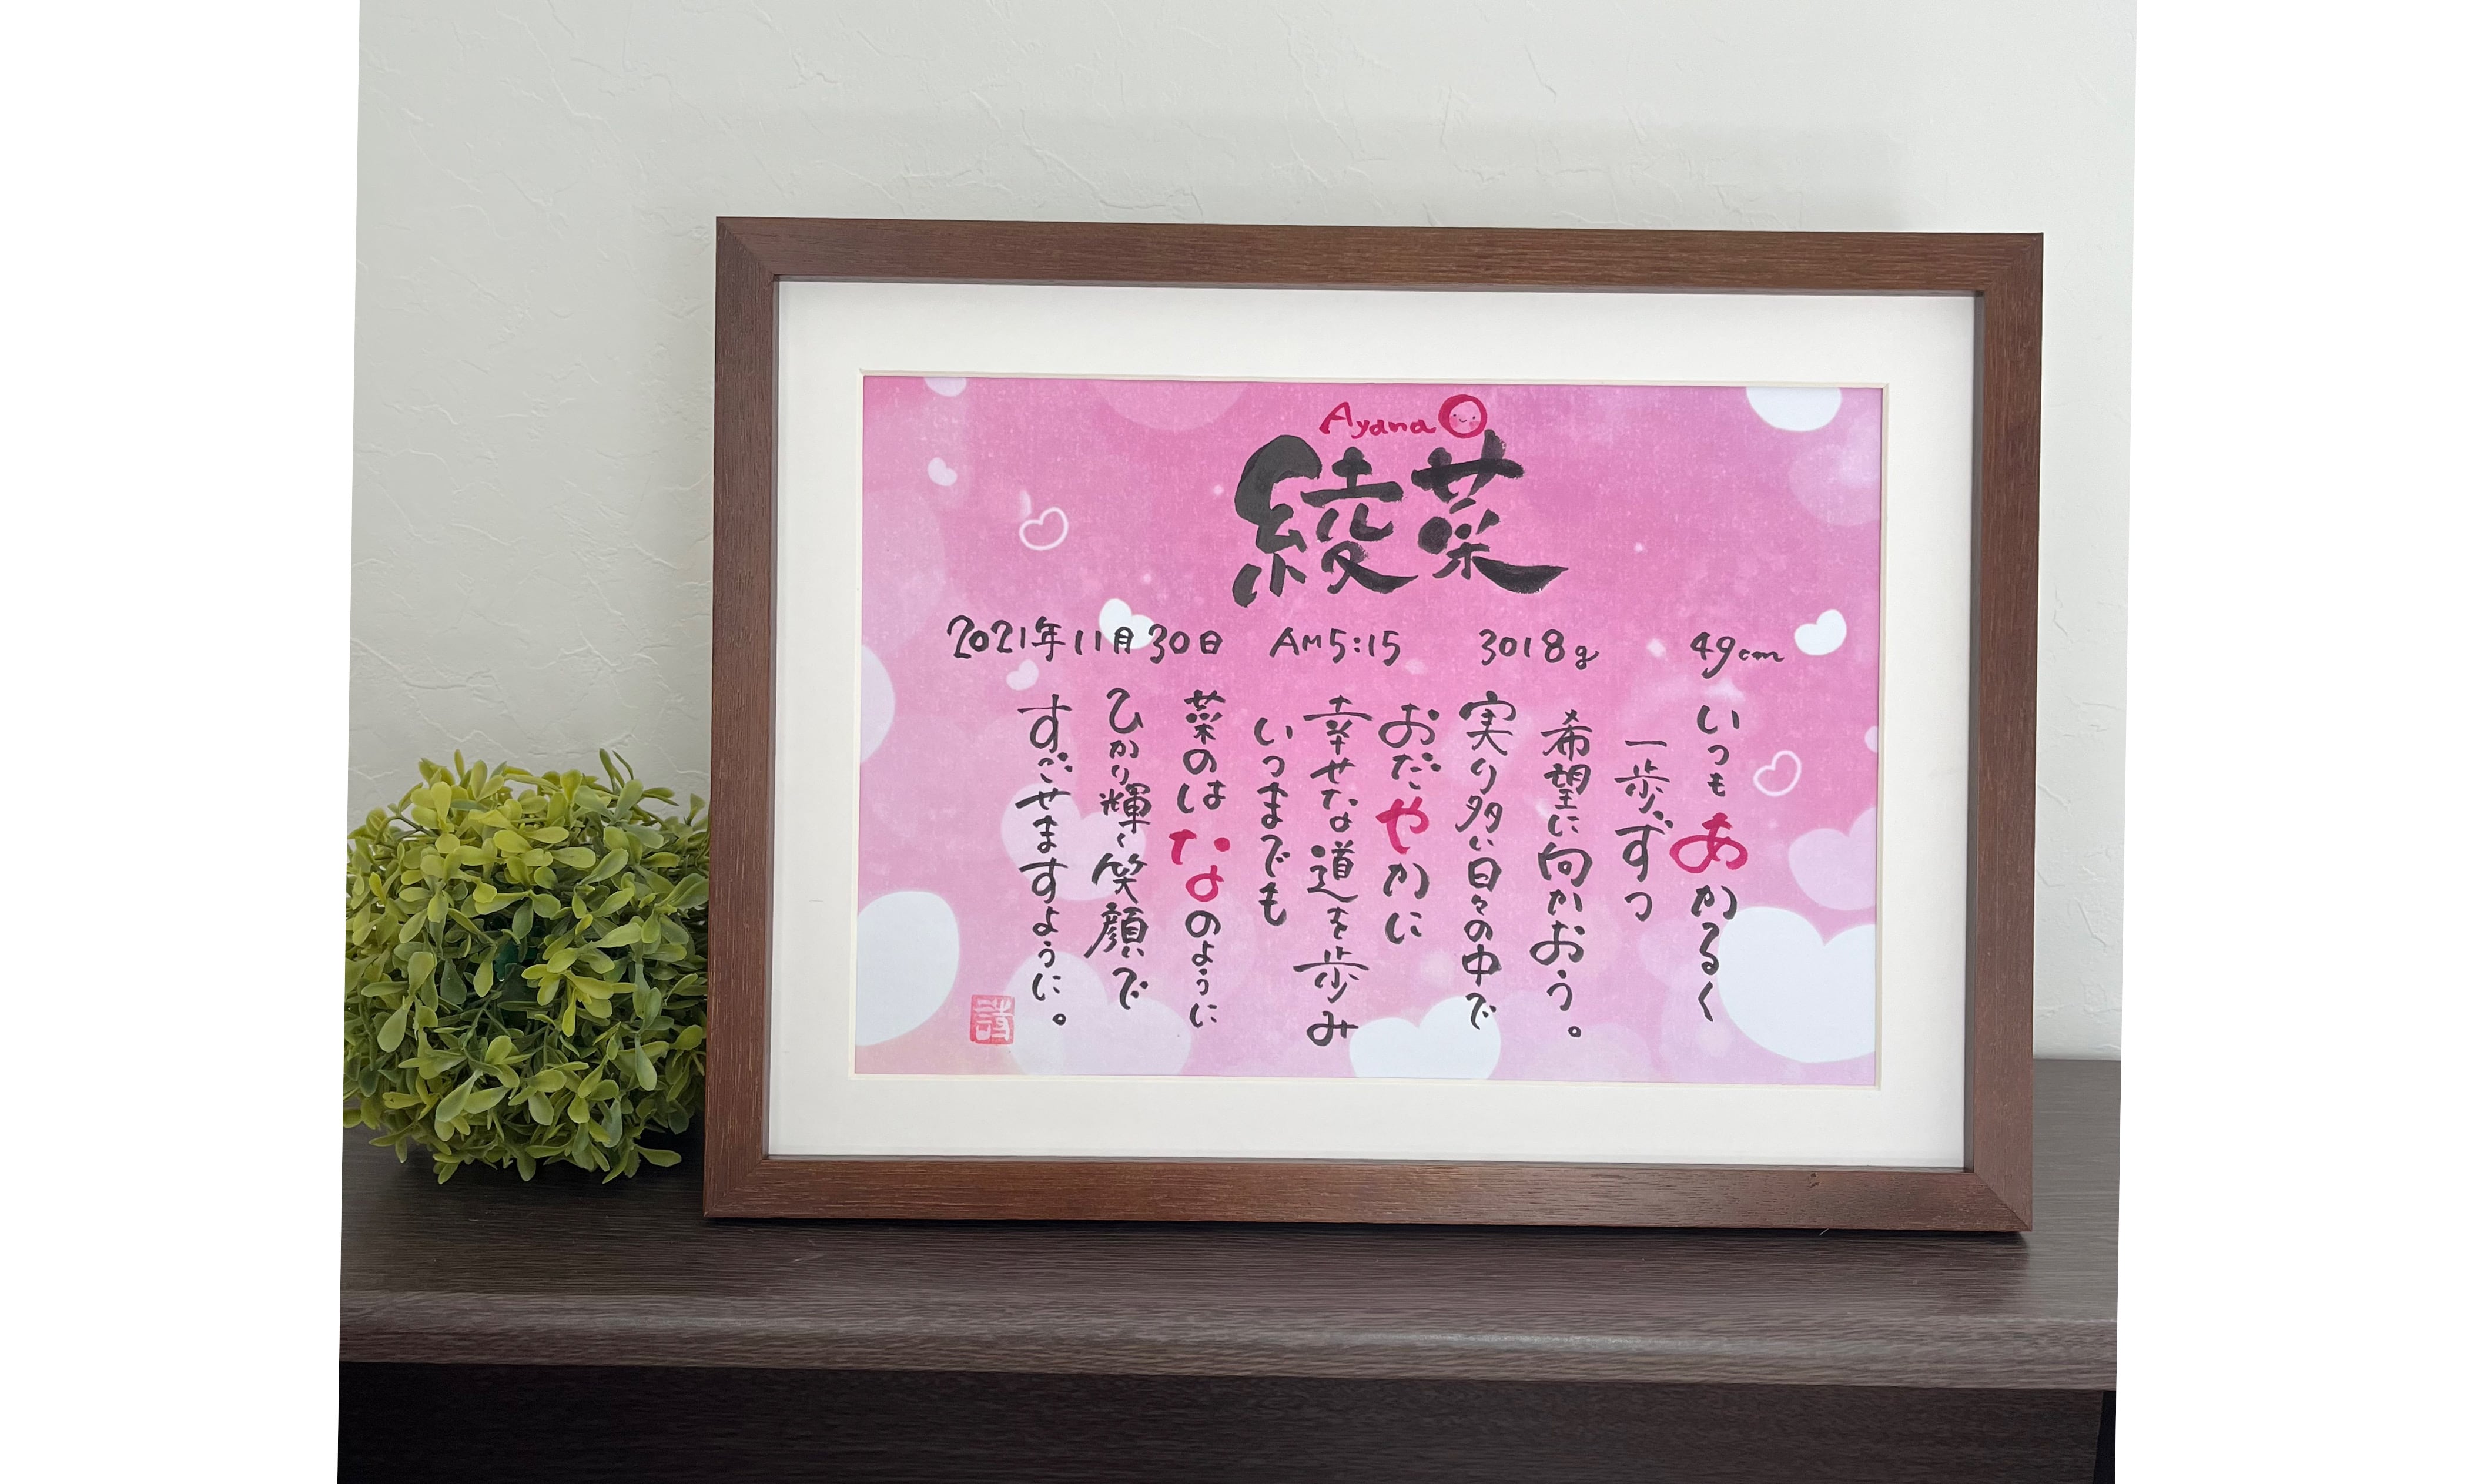 Ayana
綾菜
2021年11月30日 AM5:15 3018g 49cm
いつもあかるく
一歩ずつ
希望に向かおう。
実り多い日々の中で
おだやかに
幸せな道を歩み
いつまでも
菜のはなのように
ひかり輝く笑顔で
すごせますように。
詩